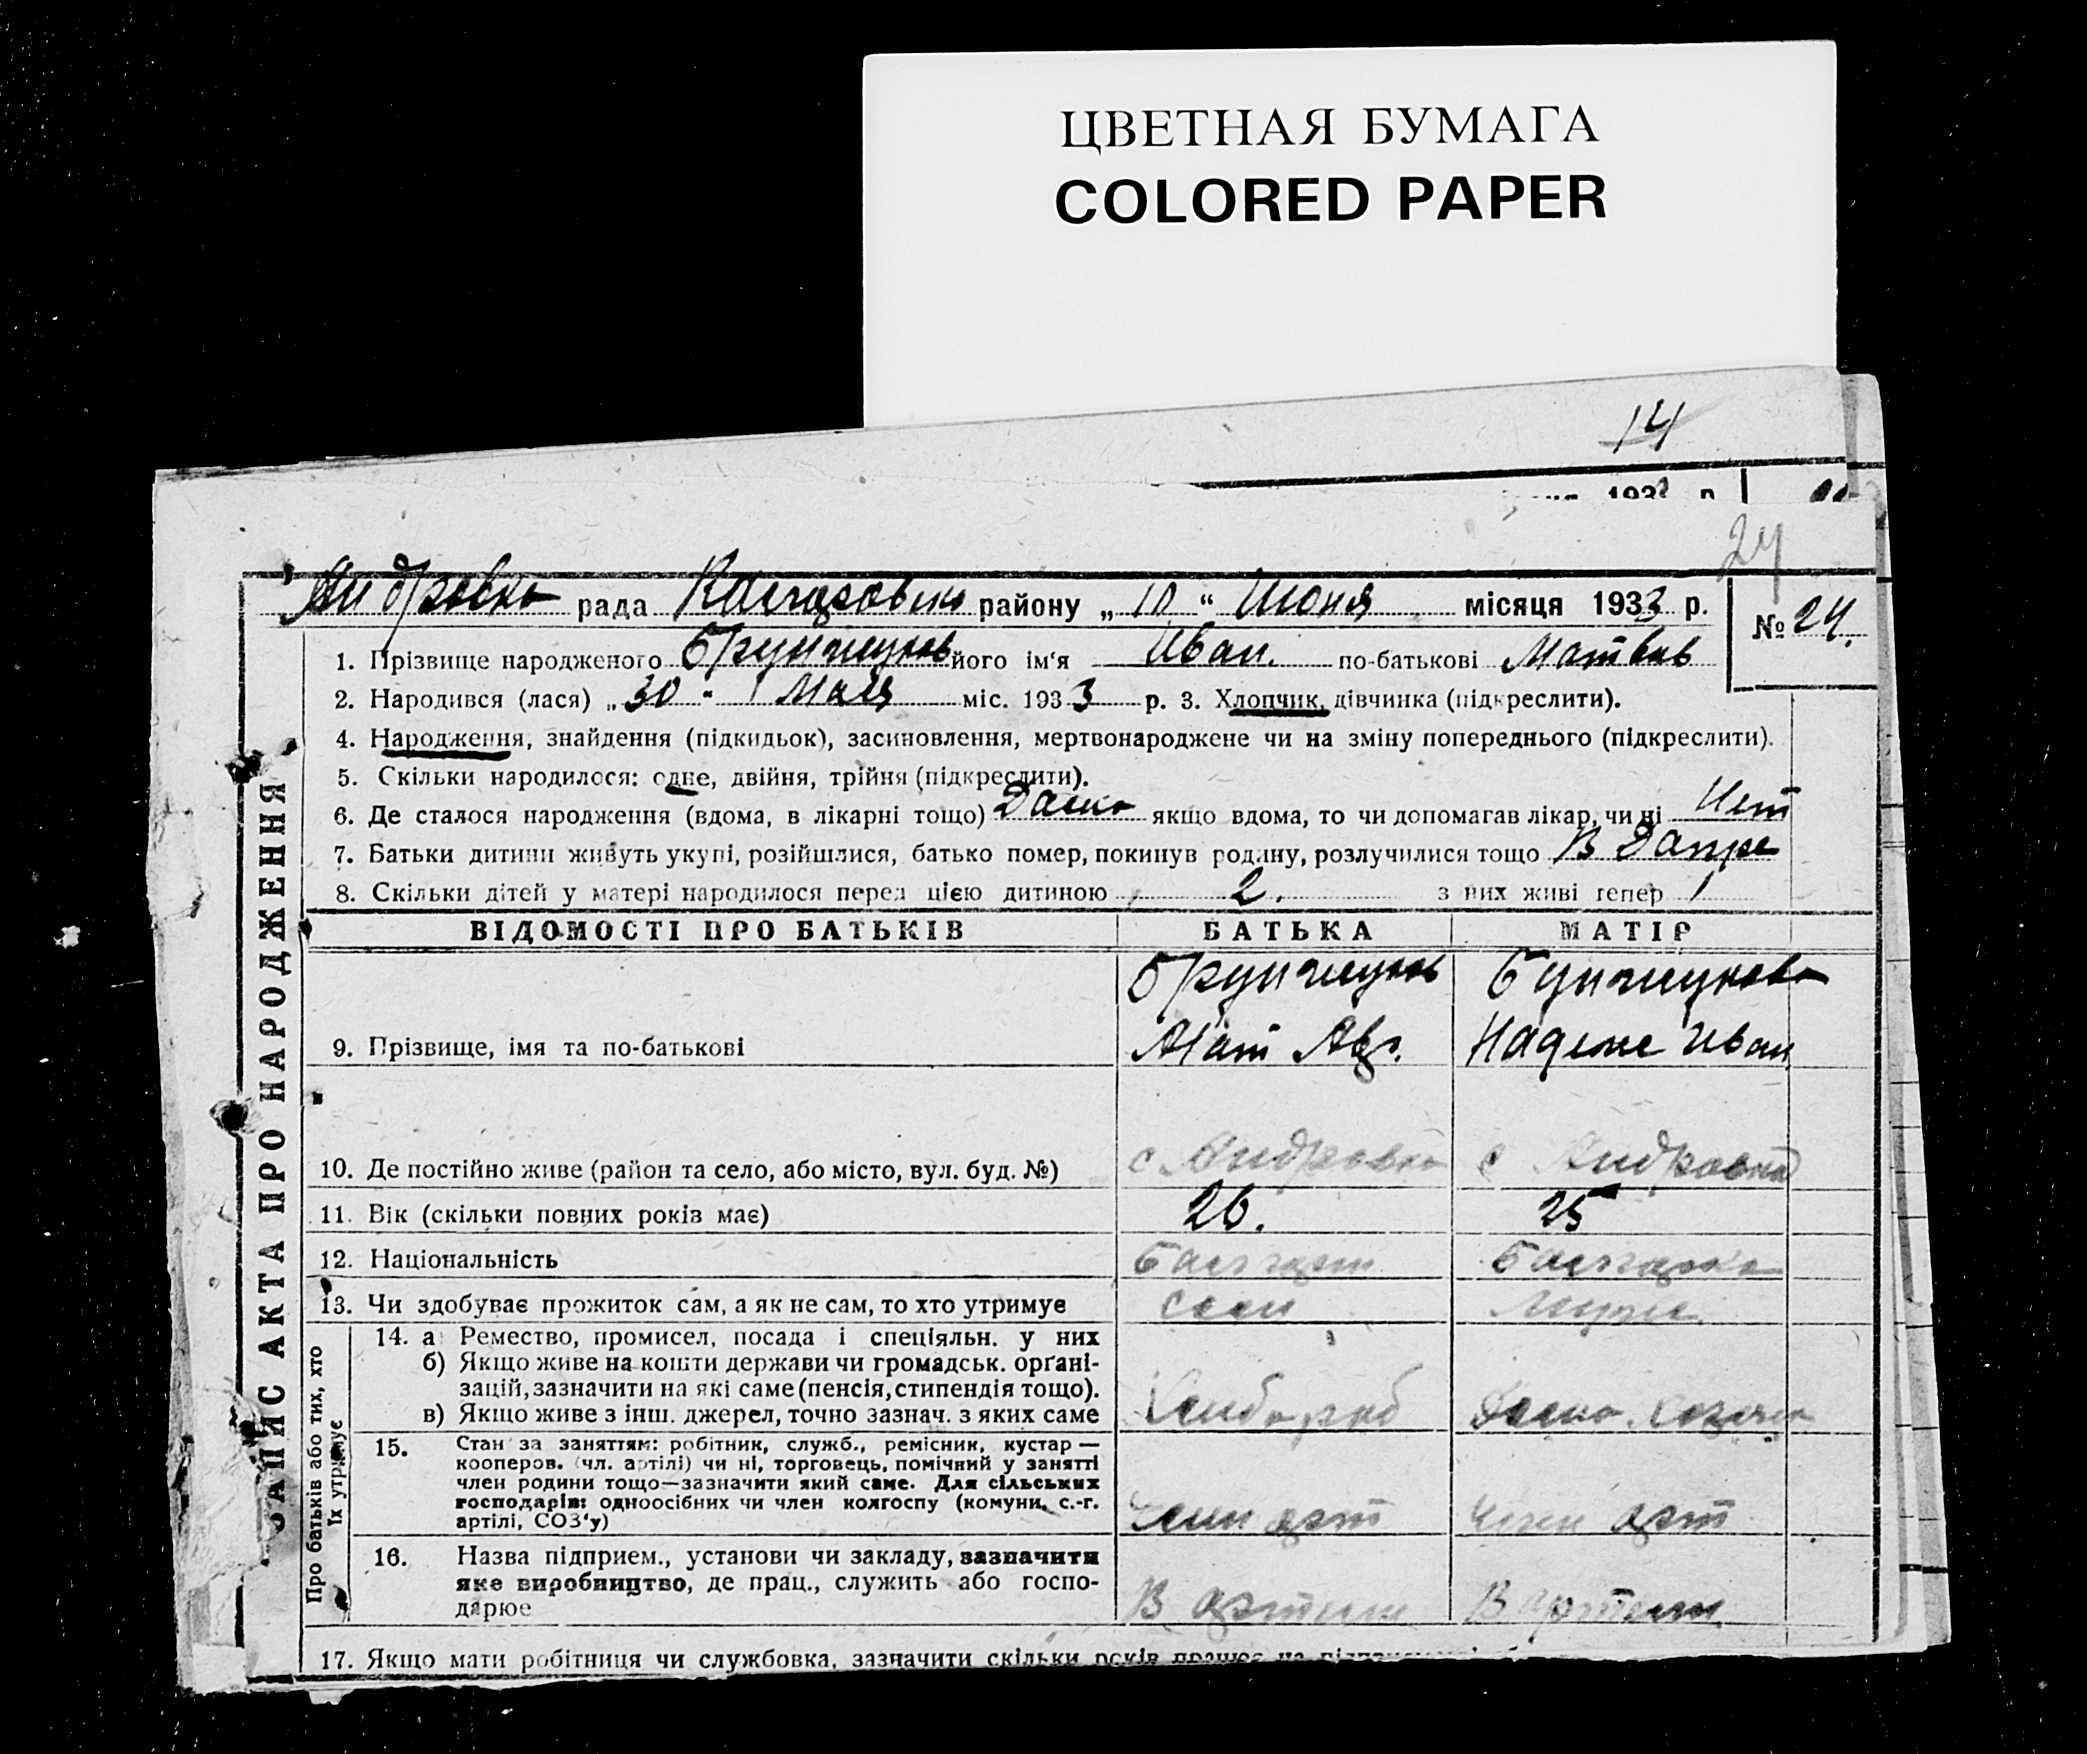 ЦВЕТНАЯ БУМАГА
COLORED PAPER
14
1933 р.
24
рада району „ 10 “ Июня місяця 1933 р.
№ 24.
1. Прізвище народженого його ім‘я Иван. по-батькові Матвев
2. Народився (лася) „ 30 “ Мая міс. 1933 р. 3. Хлопчик, дівчинка (підкреслити).
4. Народження, знайдення (підкидьок), засиновлення, мертвонароджене чи на зміну попереднього (підкреслити).
5. Скільки народилося: одне, двійня, трійня (підкреслити).
6. Де сталося народження (вдома, в лікарні тощо) Дома якщо вдома, то чи допомагав лікар, чи ні Нет
7. Батьки дитини живуть укупі, розійшлися, батько помер, покинув родину, розлучилися тощо В
8. Скільки дітей у матері народилося перед цією дитиною 2. з них живі тепер 1
ЗАПИС АКТА ПРО НАРОДЖЕННЯ
ВІДОМОСТІ ПРО БАТЬКІВ БАТЬКА МАТІР
9. Прізвище, імя та по-батькові Надеже Иван
10. Де постійно живе (район та село, або місто, вул. буд. №) с Андровка с Андровка
11. Вік (скільки повних років має) 26. 25
12. Національність Болгарин Болгарка
13. Чи здобуває прожиток сам, а як не сам, то хто утримує сам муж
Про батьків або тих, хто їх утримує
14. а) Ремество, промисел, посада і спеціяльн. у них
б) Якщо живе на кошти держави чи громадськ. орґані-
зацій, зазначити на які саме (пенсія, стипендія тощо).
в) Якщо живе з інш. джерел, точно зазнач. з яких саме Хлебороб Домо хозяйка
15. Стан за заняттям: робітник, служб., ремісник, кустар —
кооперов. (чл. артілі) чи ні, торговець, помічний у занятті
член родини тощо—зазначити який саме. Для сільських
господарів: одноосібних чи член колгоспу (комуни, с.-г.
артілі, СОЗ‘у) Член арт Член арт
16. Назва підприєм., установи чи закладу, зазначити
яке виробництво, де прац., служить або госпо-
дарює В артели В артели
17. Якщо мати робітниця чи службовка, зазначити скільки років працює на